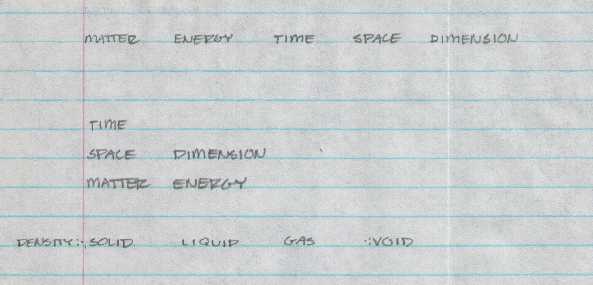 MATTER ENERGY TIME SPACE DIMENSION
TIME
SPACE DIMENSION
MATTER ENERGY
DENSITY:· SOLID LIQUID GAS ·:VOID